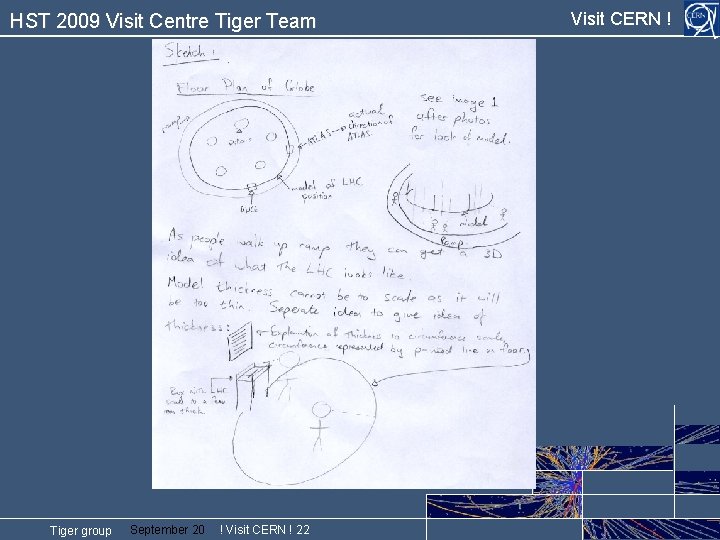 HST 2009 Visit Centre Tiger Team
Visit CERN !
CERN
Sketch 1
Floor Plan of Globe
see image 1
after photos
for look of model.
actual
direction of
ATLAS.
ATLAS
model of LHC
position
model
Ramp.
As people walk up ramp they can get a 3D
idea of what the LHC looks like.
Model thickness cannot be to scale as it will
be too thin. Seperate idea to give idea of
thickness:
Explanation of thickness to circumference scale,
circumference represented by painted line on floor.
Box with LHC
scaled to a few
mm thick.
Tiger group
September 20
! Visit CERN ! 22